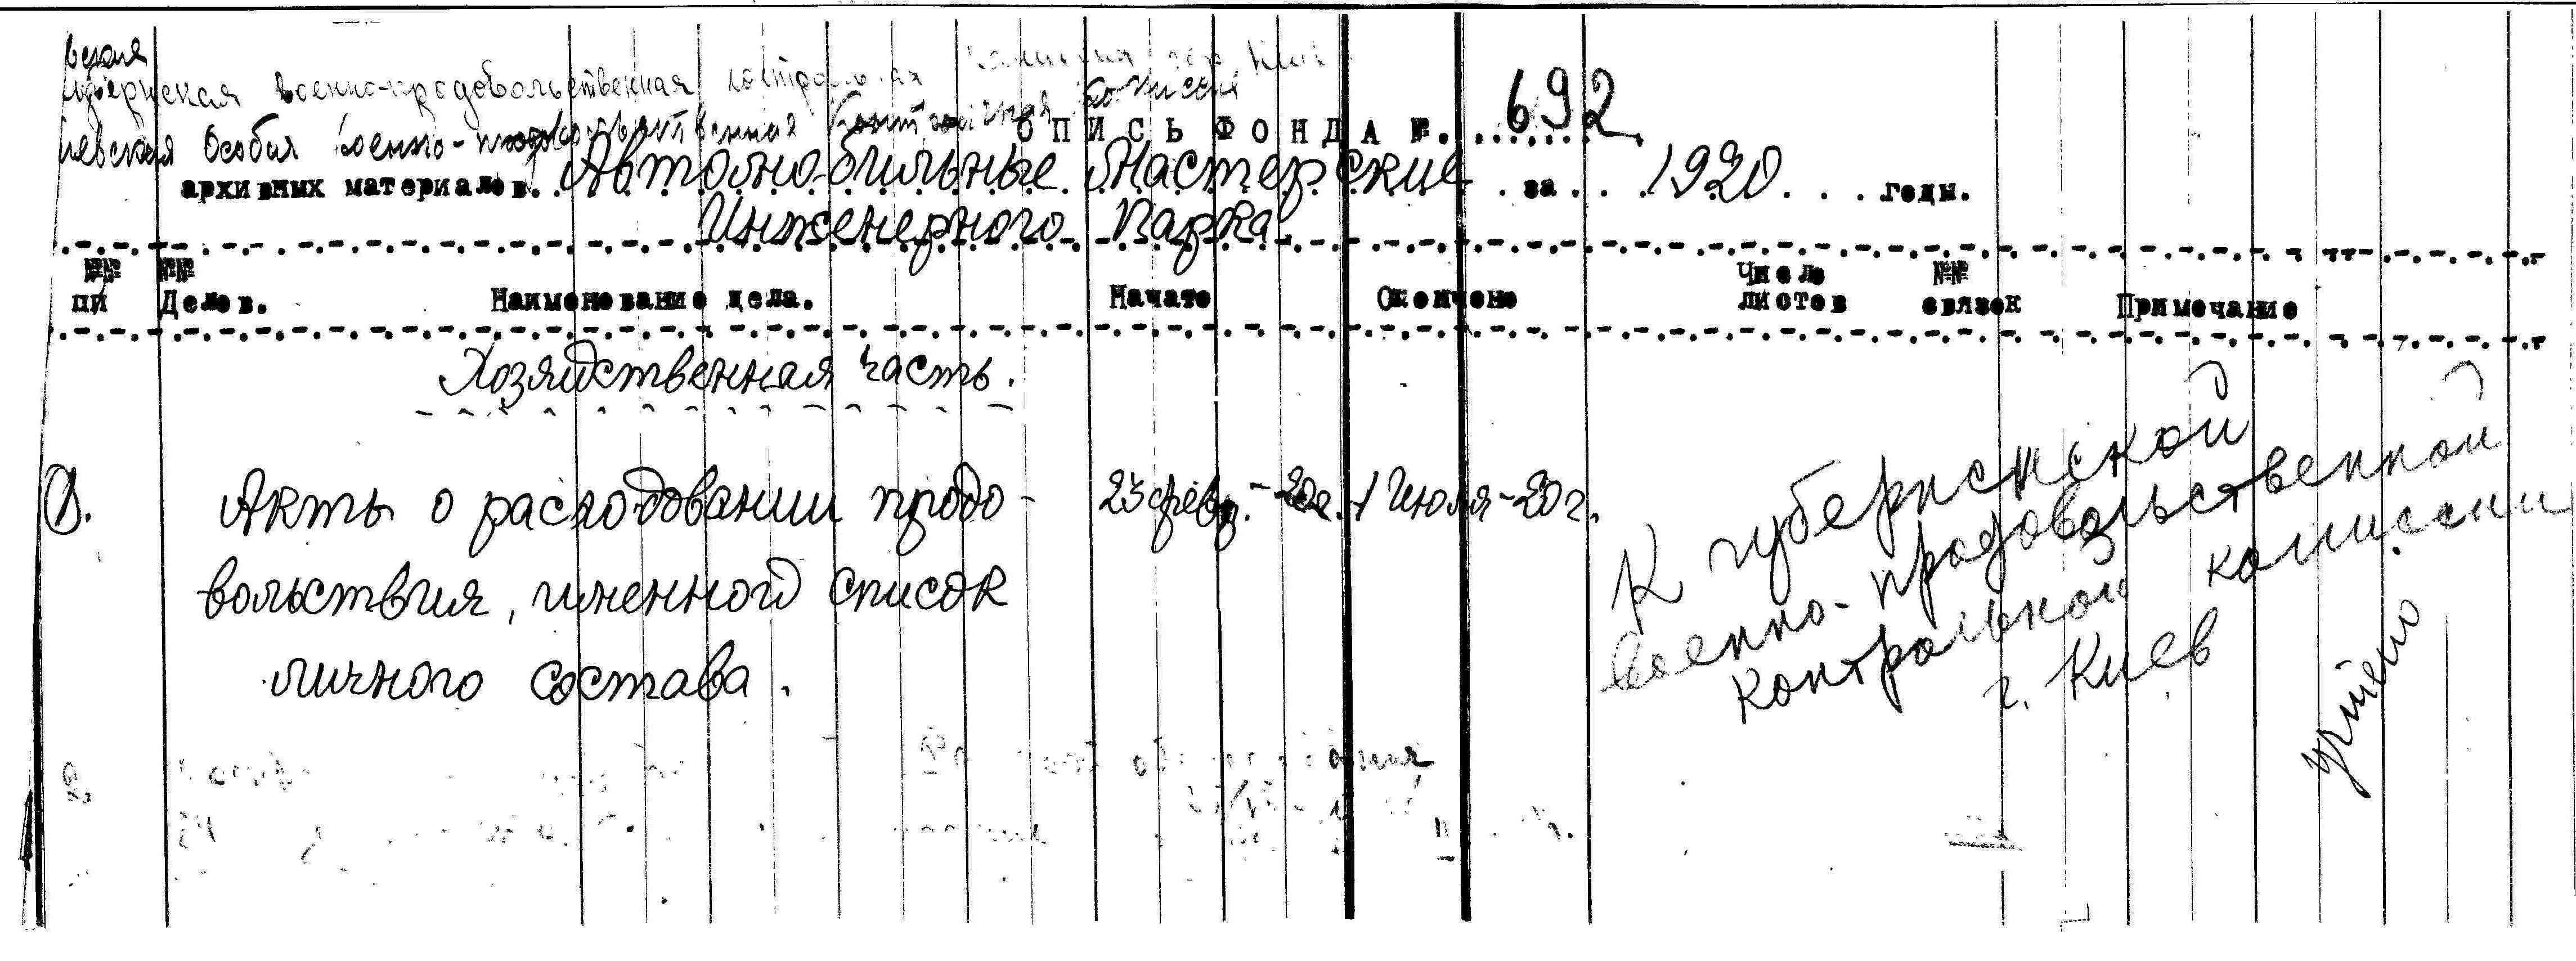 военно-продовольственная
Особая военно-продовольственная Контрольная Комиссия
ОПИСЬ ФОНДА №. 692
архивных материалов. Автомобильные Мастерские за 1920 годы.
Инженерного Парка
№№ пп №№ Делов. Наименование дела. Начато Окончено Число листов №№ связок Примечание
Хозяйственная часть.
1. Акты о расходовании продо- 23 февр.-20г. 1 Июля-20г.
вольствия, именной список
личного состава.
К губернской
военно-продовольственной
контрольной комиссии
г. Киев
учтено